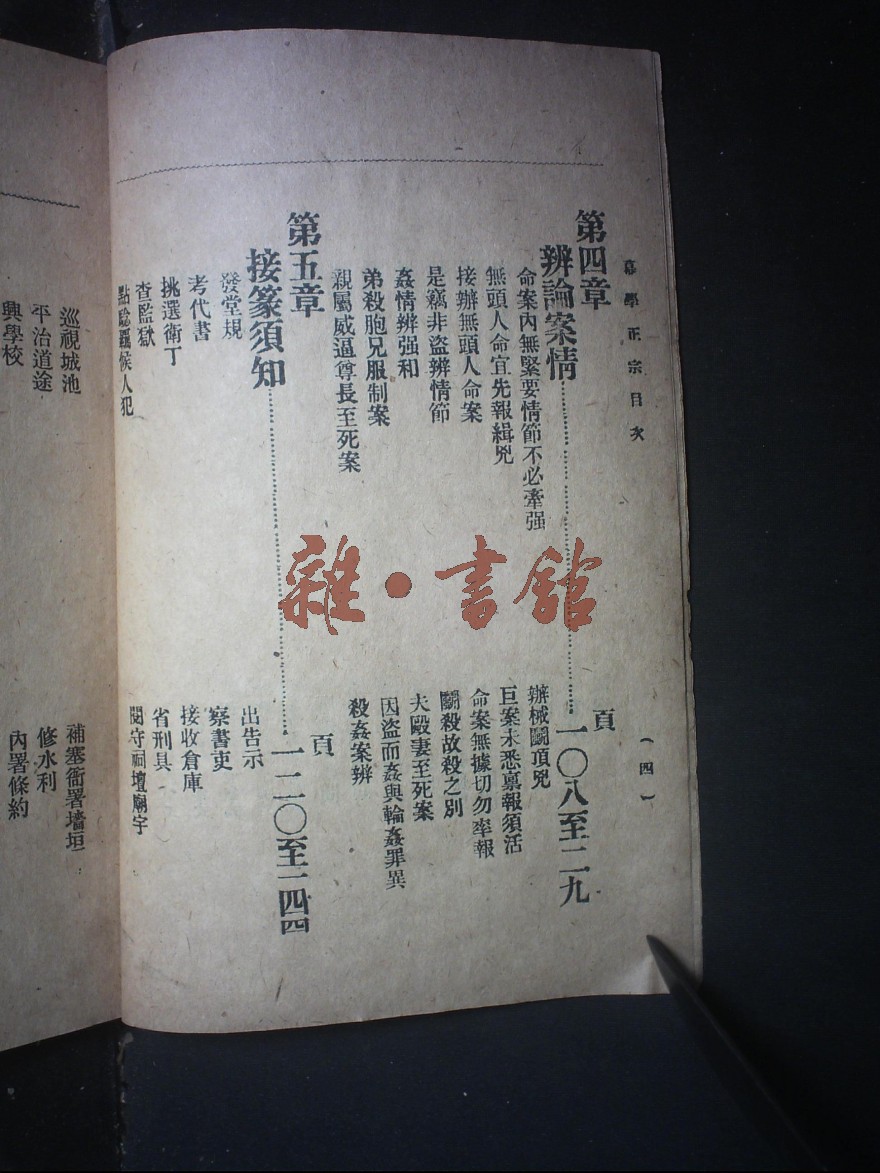 幕學正宗目次
(四)
第四章
辨論案情 頁一〇八至一一九
命案內無緊要情節不必牽强
辦械鬭頂兇
無頭人命宜先報緝兇
巨案未悉稟報須活
接辦無頭人命案
命案無據切勿率報
是竊非盜辨情節
鬭殺故殺之別
姦情辨强和
夫毆妻至死案
弟殺胞兄服制案
因盜而姦與輪姦罪異
親屬威逼尊長至死案
殺姦案辨
第五章
接篆須知 頁一二〇至一四四
發堂規
出告示
考代書
察書吏
挑選衛丁
接收倉庫
查監獄
省刑具
點驗羈候人犯
閱守祠壇廟宇
巡視城池
補塞衙署墻垣
平治道途
修水利
興學校
內署條約
雜·書館